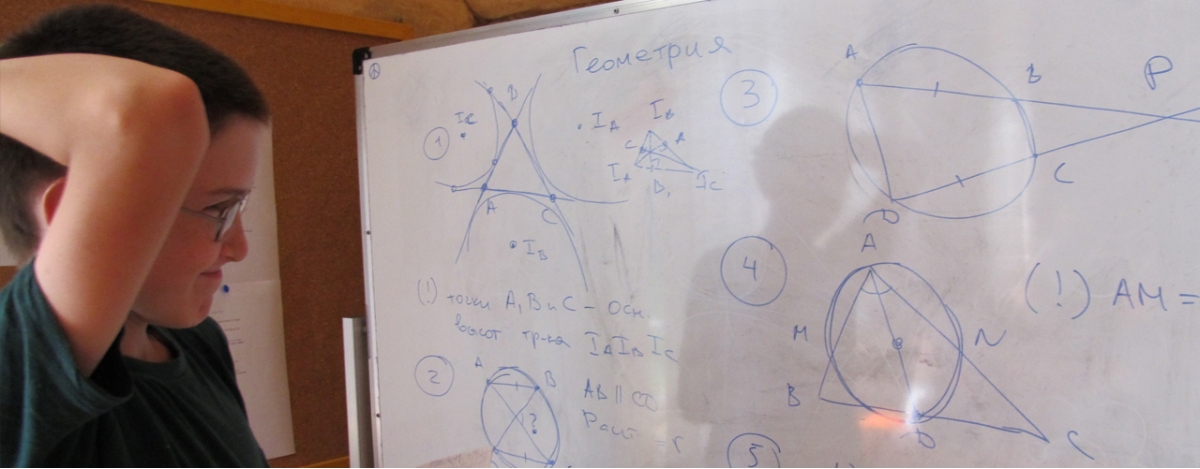 Геометрия
1
B
A
C
I_A
I_B
I_B
C
A
I_A
B
I_C
(!) точки A, B и C – осн.
высот тр-ка I_A I_B I_C
2
A
B
?
AB ||
3
A
B
P
C
D
4
A
M
N
B
D
C
(!) AM =
5